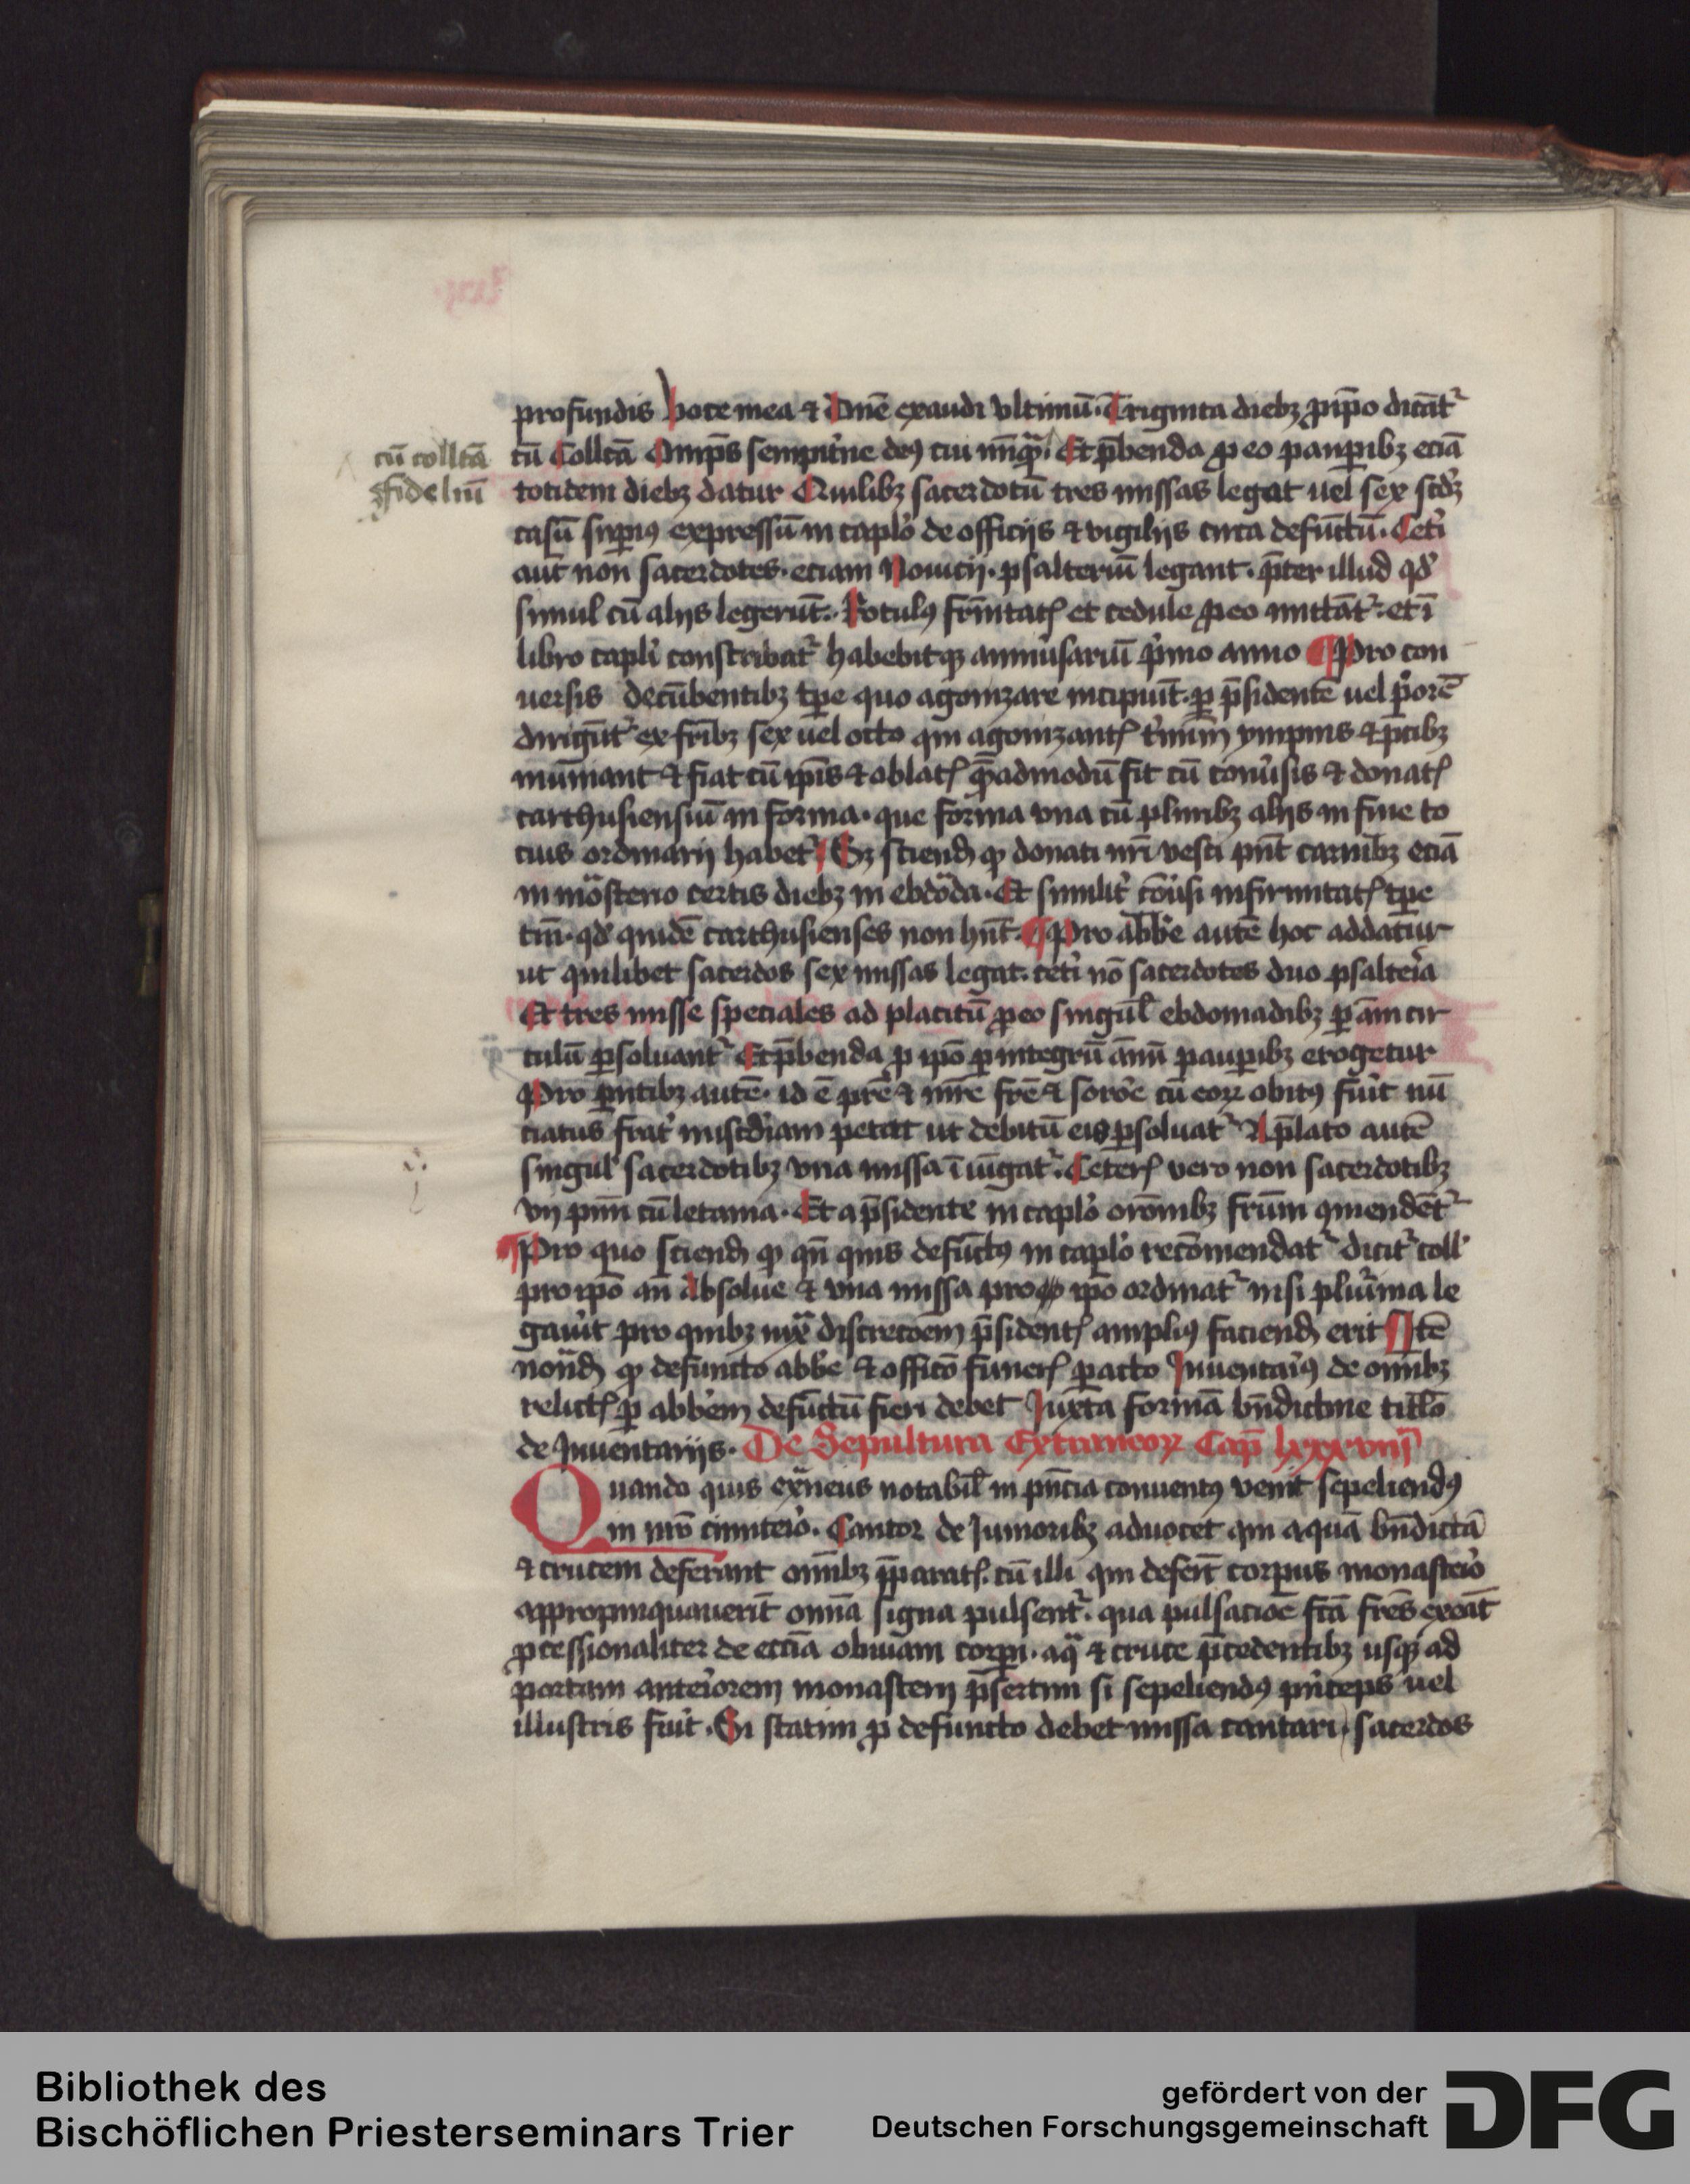 profundis voce mea ⁊ Dn̄e exaudi vltimū. Triginta diebꝫ ꝓ ip̄o dicāt᷑
cū collcā
ffideliū
cū Collcā Omp̄s sempit̾ne deꝰ cui Et p̄benda ꝓ eo pauꝑibꝫ eciā
totidem diebꝫ datur Quilibꝫ sacerdotū tres missas legat uel sex scd̾ꝫ
casū suꝑiꝰ expressū in caplo̾ de officijs ⁊ vigilijs circa defūctū. Cet̾i
aut̄ non sacerdotes. eciam Nouicij. psalteriū legant. p̄ter illud qd̾
simul cū alijs legerūt. Rotulꝰ et cedule ꝓ eo mittāt᷑. et ī
libro capl̾i conscribat᷑ habebitqꝫ anniu̾sariū p̾mo anno ¶ Pro con
uersis decūbentibꝫ tꝑe quo agonizare incipiūt. ꝑ p̄sidentē uel p̾orē
dirigūt᷑ ex fr̄ibꝫ sex uel octo qui ympnis ⁊ p̄cibꝫ
muniant ⁊ fiat cū ip̄is ⁊ oblatꝭ q̄admodū fit cū conu̾sis ⁊ donatꝭ
carthusiensiū in forma. que forma vna cū pluribꝫ alijs in fine to
cius ordinarij habet᷑ ¶ Sꝫ sciend̄ ꝙ donati nr̄i vesci pn̄t carnibꝫ eciā
in mo̾sterio certis diebꝫ in ebdo̾da. Et similit̾ cōu̾si infirmitatꝭ tꝑe
tm̄. qd̾ quidē carthusienses non hn̄t. ¶ Pro abb̾e autē hoc addatur
ut quilibet sacerdos sex missas legat. cet̾i nō sacerdotes duo psalter̾a
Et tres misse speciales ad placitū ꝓ eo singul̾ ebdomadibꝫ ꝑ cir
culū ꝑsoluant᷑ Et p̄benda ꝓ ip̄o ꝑ integrū ann̄ pauꝑibꝫ erogetur
Pro ꝑntibꝫ autē. id ē pr̄e ⁊ mr̄e fr̄e ⁊ soro̾e cū eoꝝ obitꝰ fu̾it nū
ciatus frat̾ miscd̾iam petat ut debitū eis ꝑsoluat᷑ A p̄lato autē
singul̾ sacerdotibꝫ vna missa īiūgat᷑. Ceterꝭ vero non sacerdotibꝫ
vij cū letania. Et a p̄sidente in caplo̾ orōnibꝫ fr̄um
¶ Pro quo sciend̄ ꝙ qn̄ quis defūctꝰ in caplo̾ recōmendat᷑ dicit᷑ coll̾
pro ip̄o an̄ Absolue ⁊ vna missa pro ip̄o ordinat᷑ nisi plu̾ima le
gau̾it pro quibꝫ discrecoēm p̄sidentꝭ ampliꝰ faciend̄ erit ¶ Itē
notand̄ ꝙ defuncto abb̾e ⁊ officō funerꝭ ꝑacto Inuentar̾ꝰ de omībꝫ
relictꝭ ꝑ abbe̾m defūctū fieri debet Iuxta formā bn̄dictine titl̄o
de Inuentarijs. De Sepultura Extraneoꝝ Cap̄ lxxxviij
Quando quis notabil̾ in pn̄cia conuentꝰ venit sepeliendꝰ
in nr̄o cimiter̾o. Cantor de Iunioribꝫ aduocet qui aquā bn̄dictā
⁊ crucem deferant omībꝫ p̄paratꝭ. cū illi qui defert̄ corpus monaster̾o
appropinquauerīt omīa signa pulsent᷑. qua pulsacioē fc̄ā fr̄es exeāt
ꝓcessionaliter de ecc̄ia obuiam corꝑi. aq̾ ⁊ cruce p̄cedentibꝫ usqꝫ ad
portam anteriorem monasterij p̄sertim si sepeliendꝰ p̾nceps uel
illustris fu̾it. Si statim ꝓ defuncto debet missa cantari sacerdos
Bibliothek des
Bischöflichen Priesterseminars Trier
gefördert von der
Deutschen Forschungsgemeinschaft
DFG